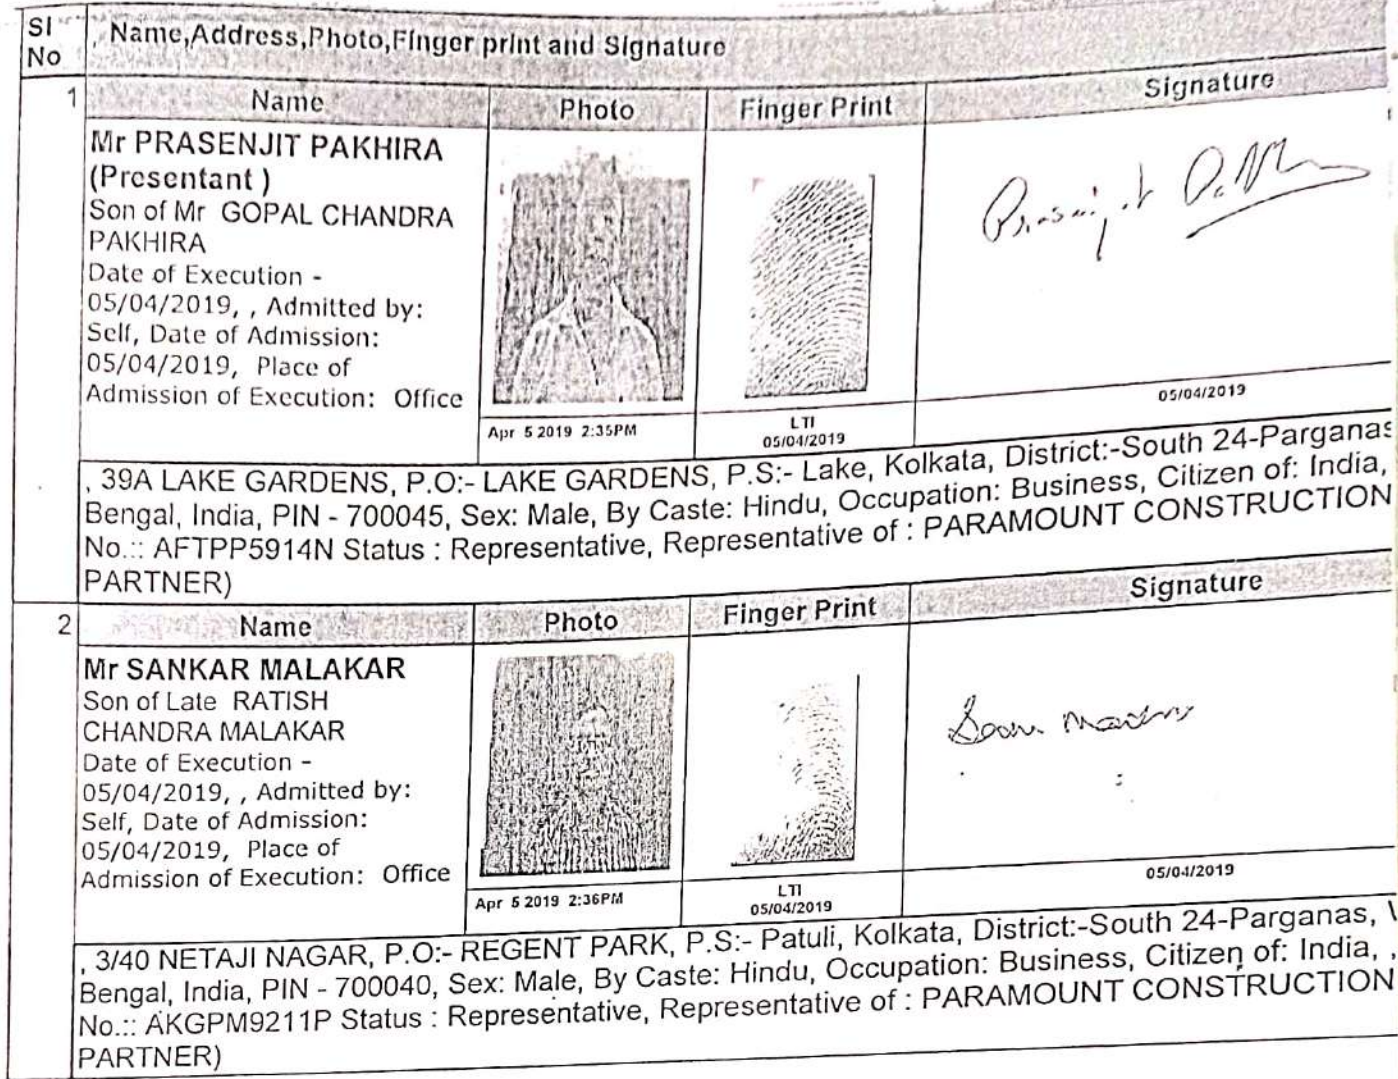 Sl No
, Name,Address,Photo,Finger print and Signature
1
Name
Photo
Finger Print
Signature
Mr PRASENJIT PAKHIRA
(Presentant )
Son of Mr GOPAL CHANDRA
PAKHIRA
Date of Execution -
05/04/2019, , Admitted by:
Self, Date of Admission:
05/04/2019, Place of
Admission of Execution: Office
Apr 5 2019 2:35PM
LTI
05/04/2019
05/04/2019
, 39A LAKE GARDENS, P.O:- LAKE GARDENS, P.S:- Lake, Kolkata, District:-South 24-Parganas
Bengal, India, PIN - 700045, Sex: Male, By Caste: Hindu, Occupation: Business, Citizen of: India,
No.:: AFTPP5914N Status : Representative, Representative of : PARAMOUNT CONSTRUCTION
PARTNER)
2
Name
Photo
Finger Print
Signature
Mr SANKAR MALAKAR
Son of Late RATISH
CHANDRA MALAKAR
Date of Execution -
05/04/2019, , Admitted by:
Self, Date of Admission:
05/04/2019, Place of
Admission of Execution: Office
Apr 5 2019 2:36PM
LTI
05/04/2019
05/04/2019
, 3/40 NETAJI NAGAR, P.O:- REGENT PARK, P.S:- Patuli, Kolkata, District:-South 24-Parganas,
Bengal, India, PIN - 700040, Sex: Male, By Caste: Hindu, Occupation: Business, Citizen of: India, ,
No.:: AKGPM9211P Status : Representative, Representative of : PARAMOUNT CONSTRUCTION
PARTNER)